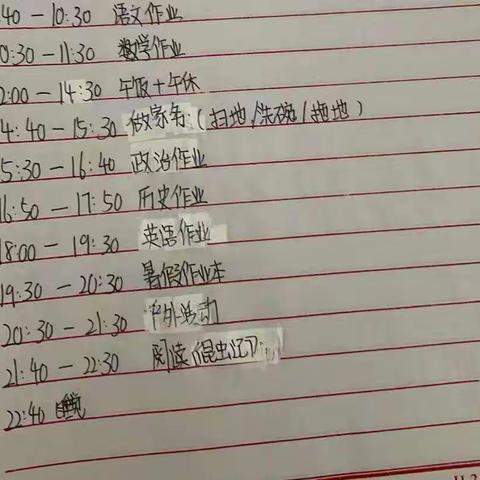 40-10:30 语文作业
0:30-11:30 数学作业
2:00-14:30 午饭+午休
4:40-15:30 做家务(扫地/洗碗/拖地)
5:30-16:40 政治作业
16:50-17:50 历史作业
18:00-19:30 英语作业
19:30-20:30 暑假作业本
20:30-21:30 户外运动
21:40-22:30 阅读(昆虫记)
22:40